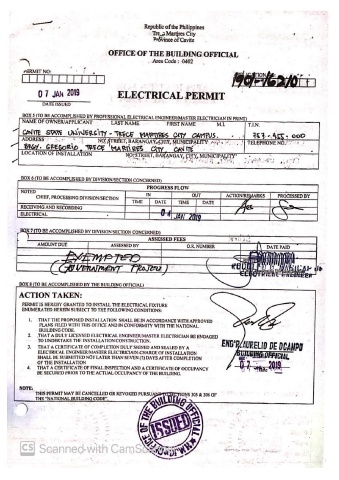 Republic of the Philippines
Trece Martires City
Province of Cavite
OFFICE OF THE BUILDING OFFICIAL
Area Code : 0402
PERMIT NO:
07 JAN 2019
DATE ISSUED
ELECTRICAL PERMIT
BOX 5 (TO BE ACCOMPLISHED BY PROFESSIONAL ELECTRICAL ENGINEER/MASTER ELECTRICIAN IN PRINT)
NAME OF OWNER/APPLICANT LAST NAME FIRST NAME M.I. T.I.N.
CAVITE STATE UNIVERSITY - TRECE MARTIRES CITY CAMPUS
ADDRESS NO. STREET, BARANGAY, CITY, MUNICIPALITY TELEPHONE NO.
BRGY. GREGORIO TRECE MARTIRES CITY, CAVITE
LOCATION OF INSTALLATION NO. STREET, BARANGAY, CITY, MUNICIPALITY
BOX 6 (TO BE ACCOMPLISHED BY DIVISION/SECTION CONCERNED)
PROGRESS FLOW
NOTED IN OUT ACTION/REMARKS PROCESSED BY
CHIEF, PROCESSING DIVISION/SECTION TIME DATE TIME DATE
RECEIVING AND RECORDING
ELECTRICAL JAN 2019
BOX 7 (TO BE ACCOMPLISHED BY DIVISION/SECTION CONCERNED)
ASSESSED FEES
AMOUNT DUE ASSESSED BY O.R. NUMBER DATE PAID
EXEMPTED
(GOVERNMENT PROJECT)
ELECTRICAL ENGINEER
BOX 8 (TO BE ACCOMPLISHED BY THE BUILDING OFFICIAL)
ACTION TAKEN:
PERMIT IS HEREBY GRANTED TO INSTALL THE ELECTRICAL FIXTURE
ENUMERATED HEREIN SUBJECT TO THE FOLLOWING CONDITIONS:
1. THAT THE PROPOSED INSTALLATION SHALL BE IN ACCORDANCE WITH APPROVED
PLANS FILED WITH THIS OFFICE AND IN CONFORMITY WITH THE NATIONAL
BUILDING CODE.
2. THAT A DULY LICENSED ELECTRICAL ENGINEER/MASTER ELECTRICIAN BE ENGAGED
TO UNDERTAKE THE INSTALLATION/CONSTRUCTION.
3. THAT A CERTIFICATE OF COMPLETION DULY SIGNED AND SEALED BY A
ELECTRICAL ENGINEER/MASTER ELECTRICIAN-CHARGE OF INSTALLATION
SHALL BE SUBMITTED NOT LATER THAN SEVEN (7) DAYS AFTER COMPLETION
OF THE INSTALLATION.
4. THAT A CERTIFICATE OF FINAL INSPECTION AND A CERTIFICATE OF OCCUPANCY
BE SECURED PRIOR TO THE ACTUAL OCCUPANCY OF THE BUILDING.
ENGR. AURELIO DE OCAMPO
BUILDING OFFICIAL
07 2019
NOTE:
THIS PERMIT MAY BE CANCELLED OR REVOKED PURSUANT TO SECTIONS 305 & 306 OF
THE "NATIONAL BUILDING CODE".
OFFICE OF THE BUILDING OFFICIAL
ISSUED
CS Scanned with CamSc